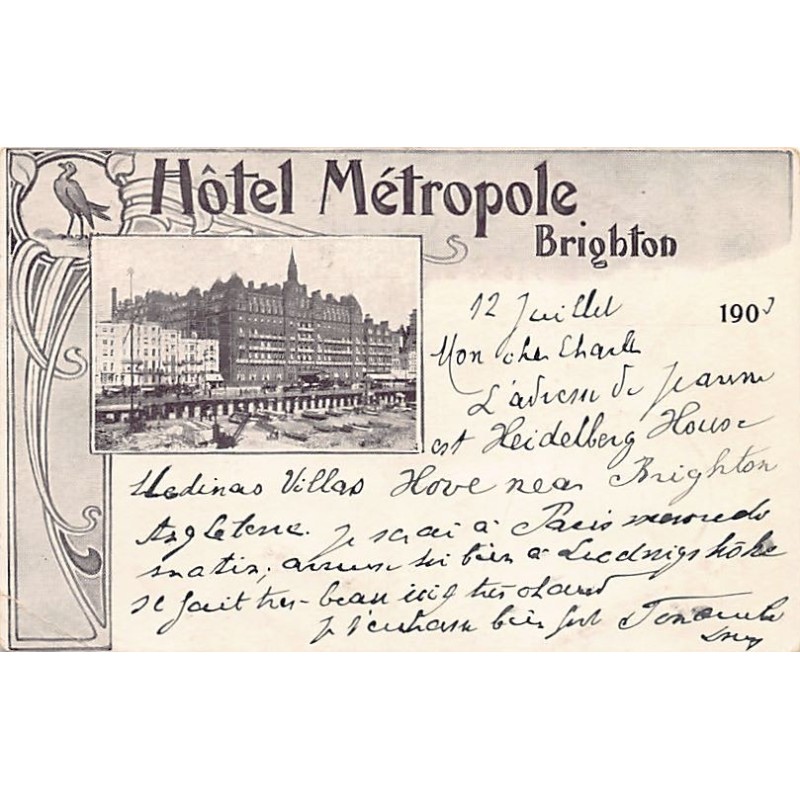 Hôtel Métropole
Brighton
12 Juillet 1903
Mon cher Charles
L'adresse de Jeanne
est Heidelberg House
Medinas Villas Hove near Brighton
Angleterre. Je serai à Paris mercredi
matin; bien à
il fait très beau ici très chaud
Je t'embrasse bien fort Ton oncle